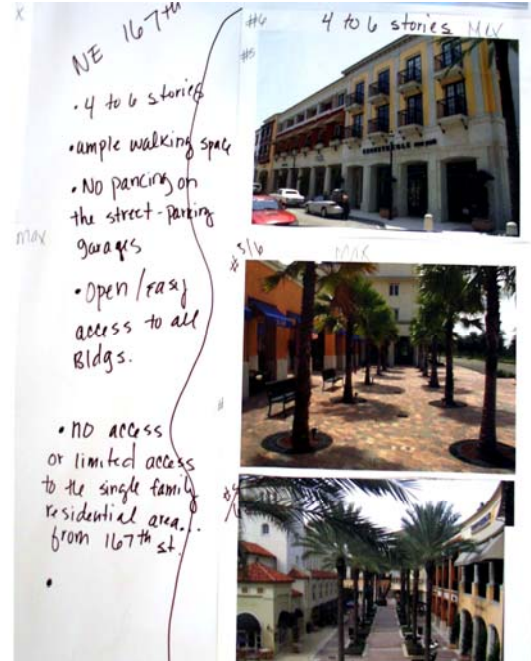 x
NE 167th
• 4 to 6 stories
• ample walking space
• No parking on
the street - parking
garages
max
• Open / easy
access to all
Bldgs.
• no access
or limited access
to the single family
residential area...
from 167th st.
•
#6 4 to 6 stories Max
#5
# 5/6 max
#